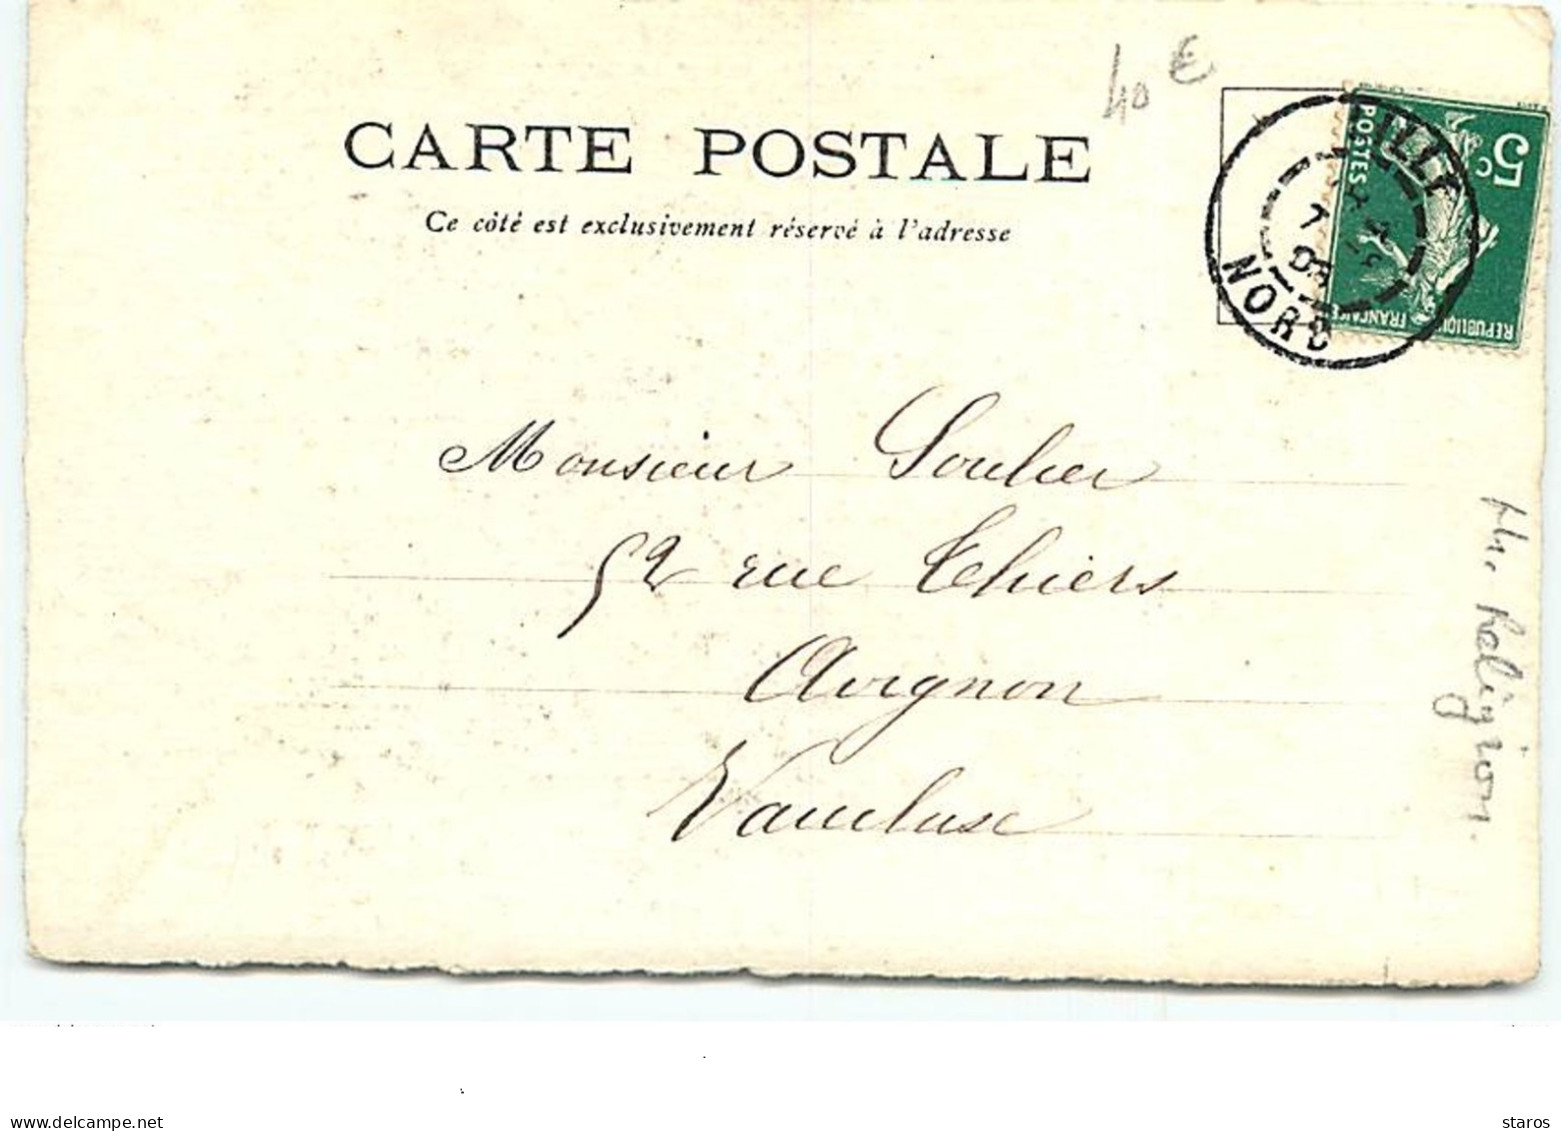 40 €
CARTE POSTALE
Ce côté est exclusivement réservé à l'adresse
5c
POSTES
REPUBLIQUE
FRANCAISE
LILLE
7
NORD
Monsieur Soulier
52 rue Thiers
Avignon
Vaucluse
Th. Religion.
www.delcampe.net
staros